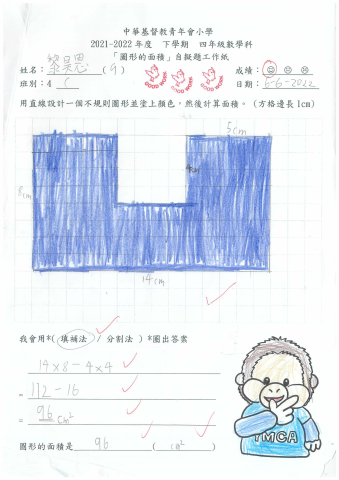 中華基督教青年會小學
2021-2022 年度 下學期 四年級數學科
「圖形的面積」自擬題工作紙
姓名： 黎昊恩 (9) GOOD WORK GOOD WORK GOOD WORK 成績：
班別：4 C 日期：6-6-2022
用直線設計一個不規則圖形並塗上顏色，然後計算面積。（方格邊長1cm）
5cm
4cm
8cm
14cm
我會用*( 填補法 / 分割法 ) *圈出答案
14×8-4×4
= 112-16
= 96 cm²
圖形的面積是 96 (cm²)
YMCA